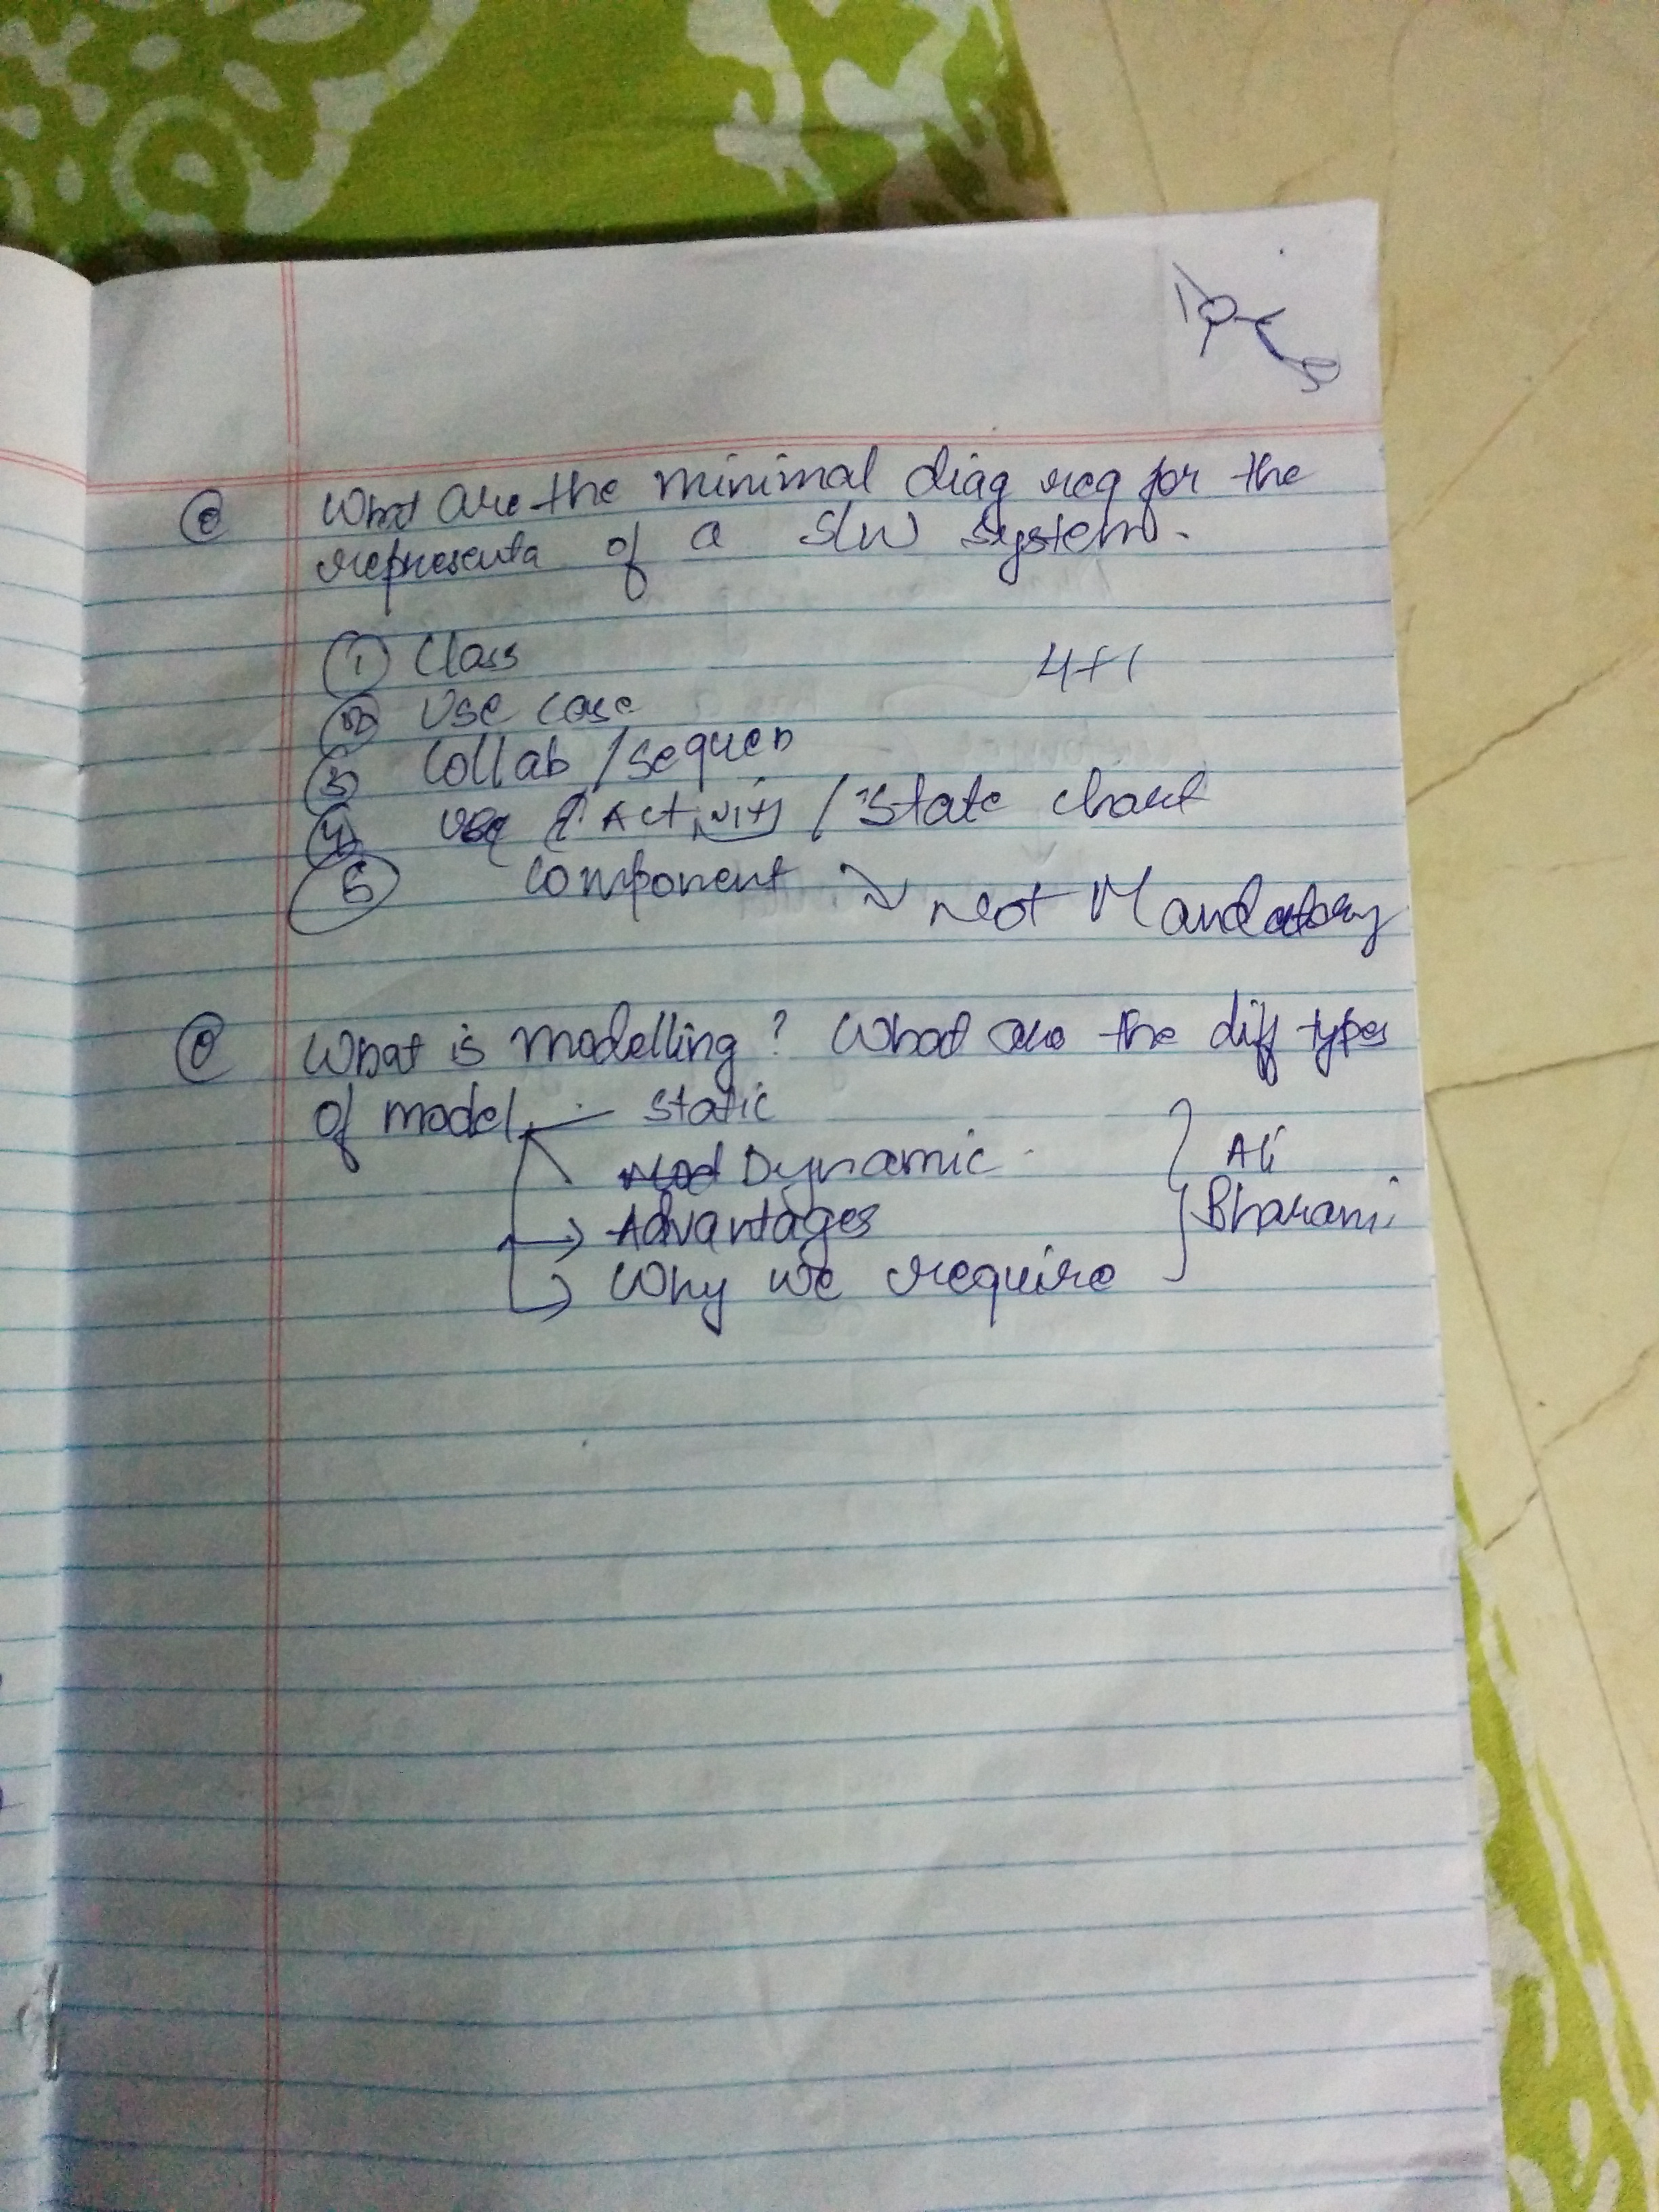 Q What are the minimal diag req for the
representa of a S/W system.
1 Class 4+1
2 Use case
3 Collab / sequen
4 Activity / State chart
5 Component → Not Mandatory
Q What is modelling? What are the diff types
of model static
Dynamic
Advantages
Why we require
Ali
Bharani